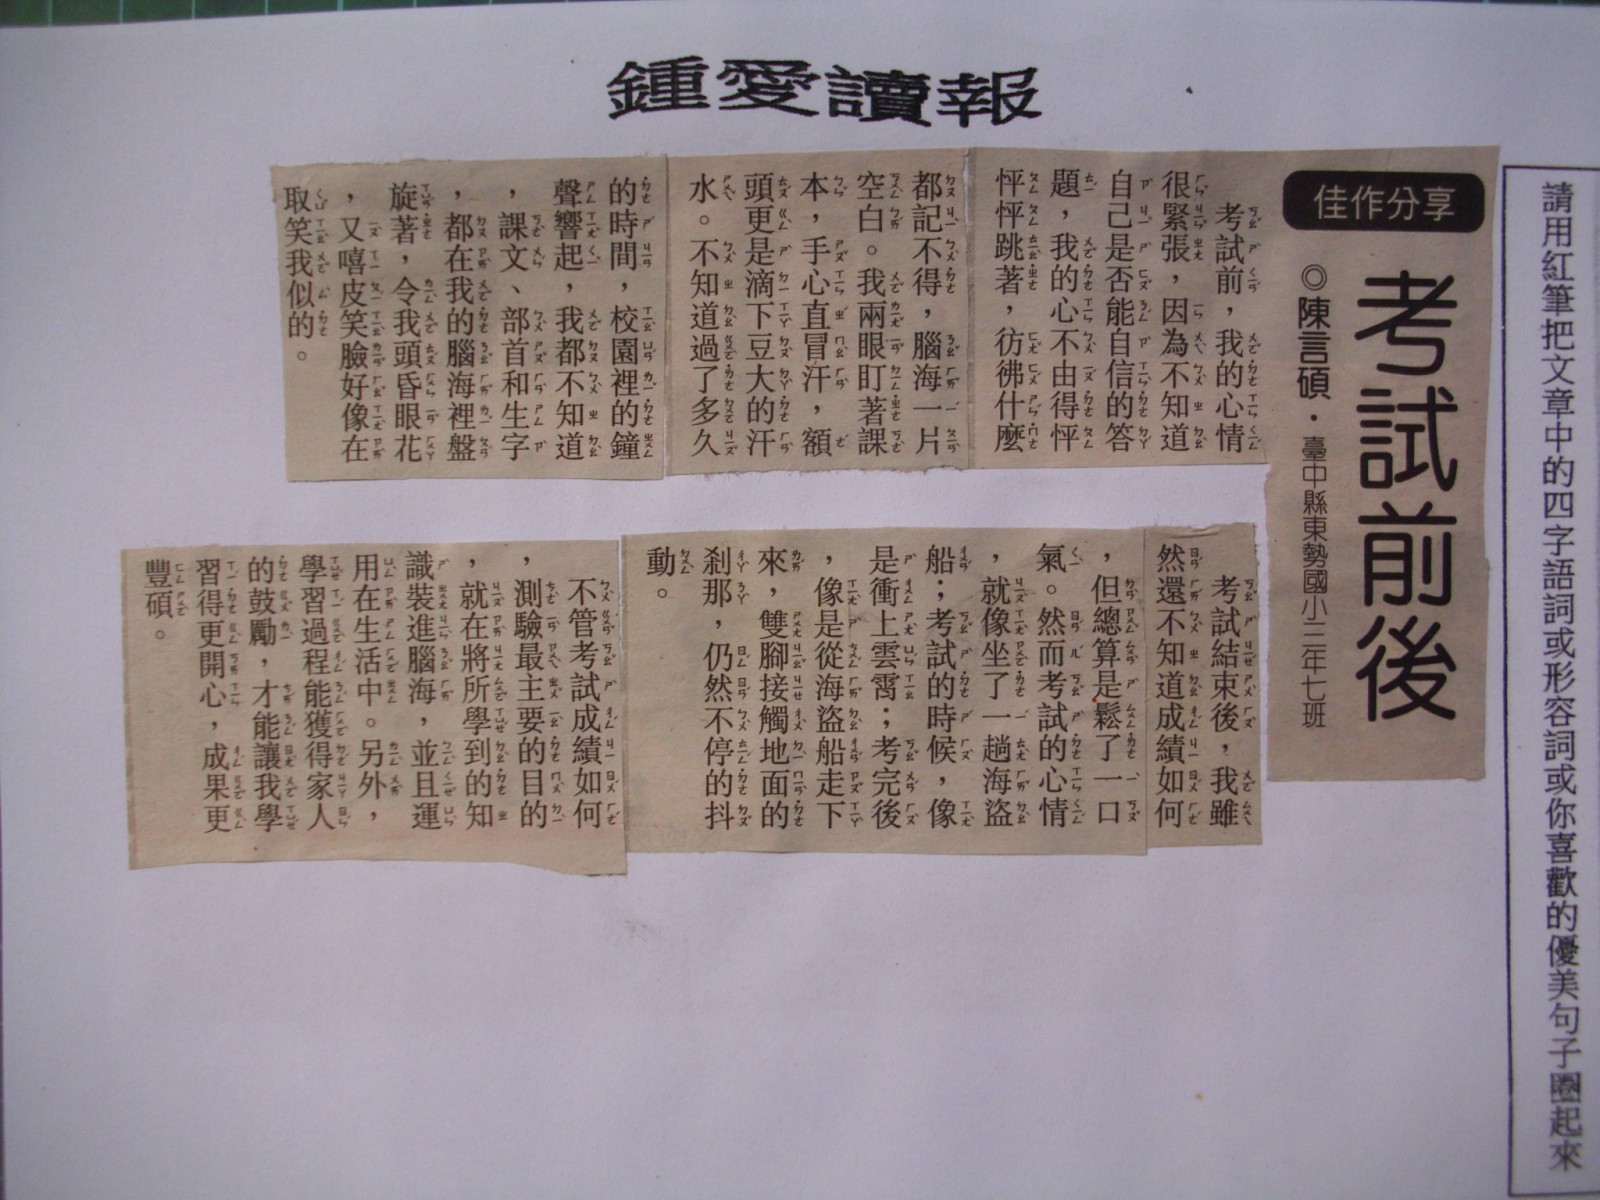 鍾愛讀報
請用紅筆把文章中的四字語詞或形容詞或你喜歡的優美句子圈起來
佳作分享
考試前後
◎陳言碩．臺中縣東勢國小三年七班
考試前，我的心情
很緊張，因為不知道
自己是否能自信的答
題，我的心不由得怦
怦怦跳著，彷彿什麼
都記不得，腦海一片
空白。我兩眼盯著課
本，手心直冒汗，額
頭更是滴下豆大的汗
水。不知道過了多久
的時間，校園裡的鐘
聲響起，我都不知道
，課文、部首和生字
，都在我的腦海裡盤
旋著，令我頭昏眼花
，又嘻皮笑臉好像在
取笑我似的。
考試結束後，我雖
然還不知道成績如何
，但總算是鬆了一口
氣。然而考試的心情
，就像坐了一趟海盜
船；考試的時候，像
是衝上雲霄；考完後
，像是從海盜船走下
來，雙腳接觸地面的
剎那，仍然不停的抖
動。
不管考試成績如何
，測驗最主要的目的
，就在將所學到的知
識裝進腦海，並且運
用在生活中。另外，
學習過程能獲得家人
的鼓勵，才能讓我學
習得更開心，成果更
豐碩。